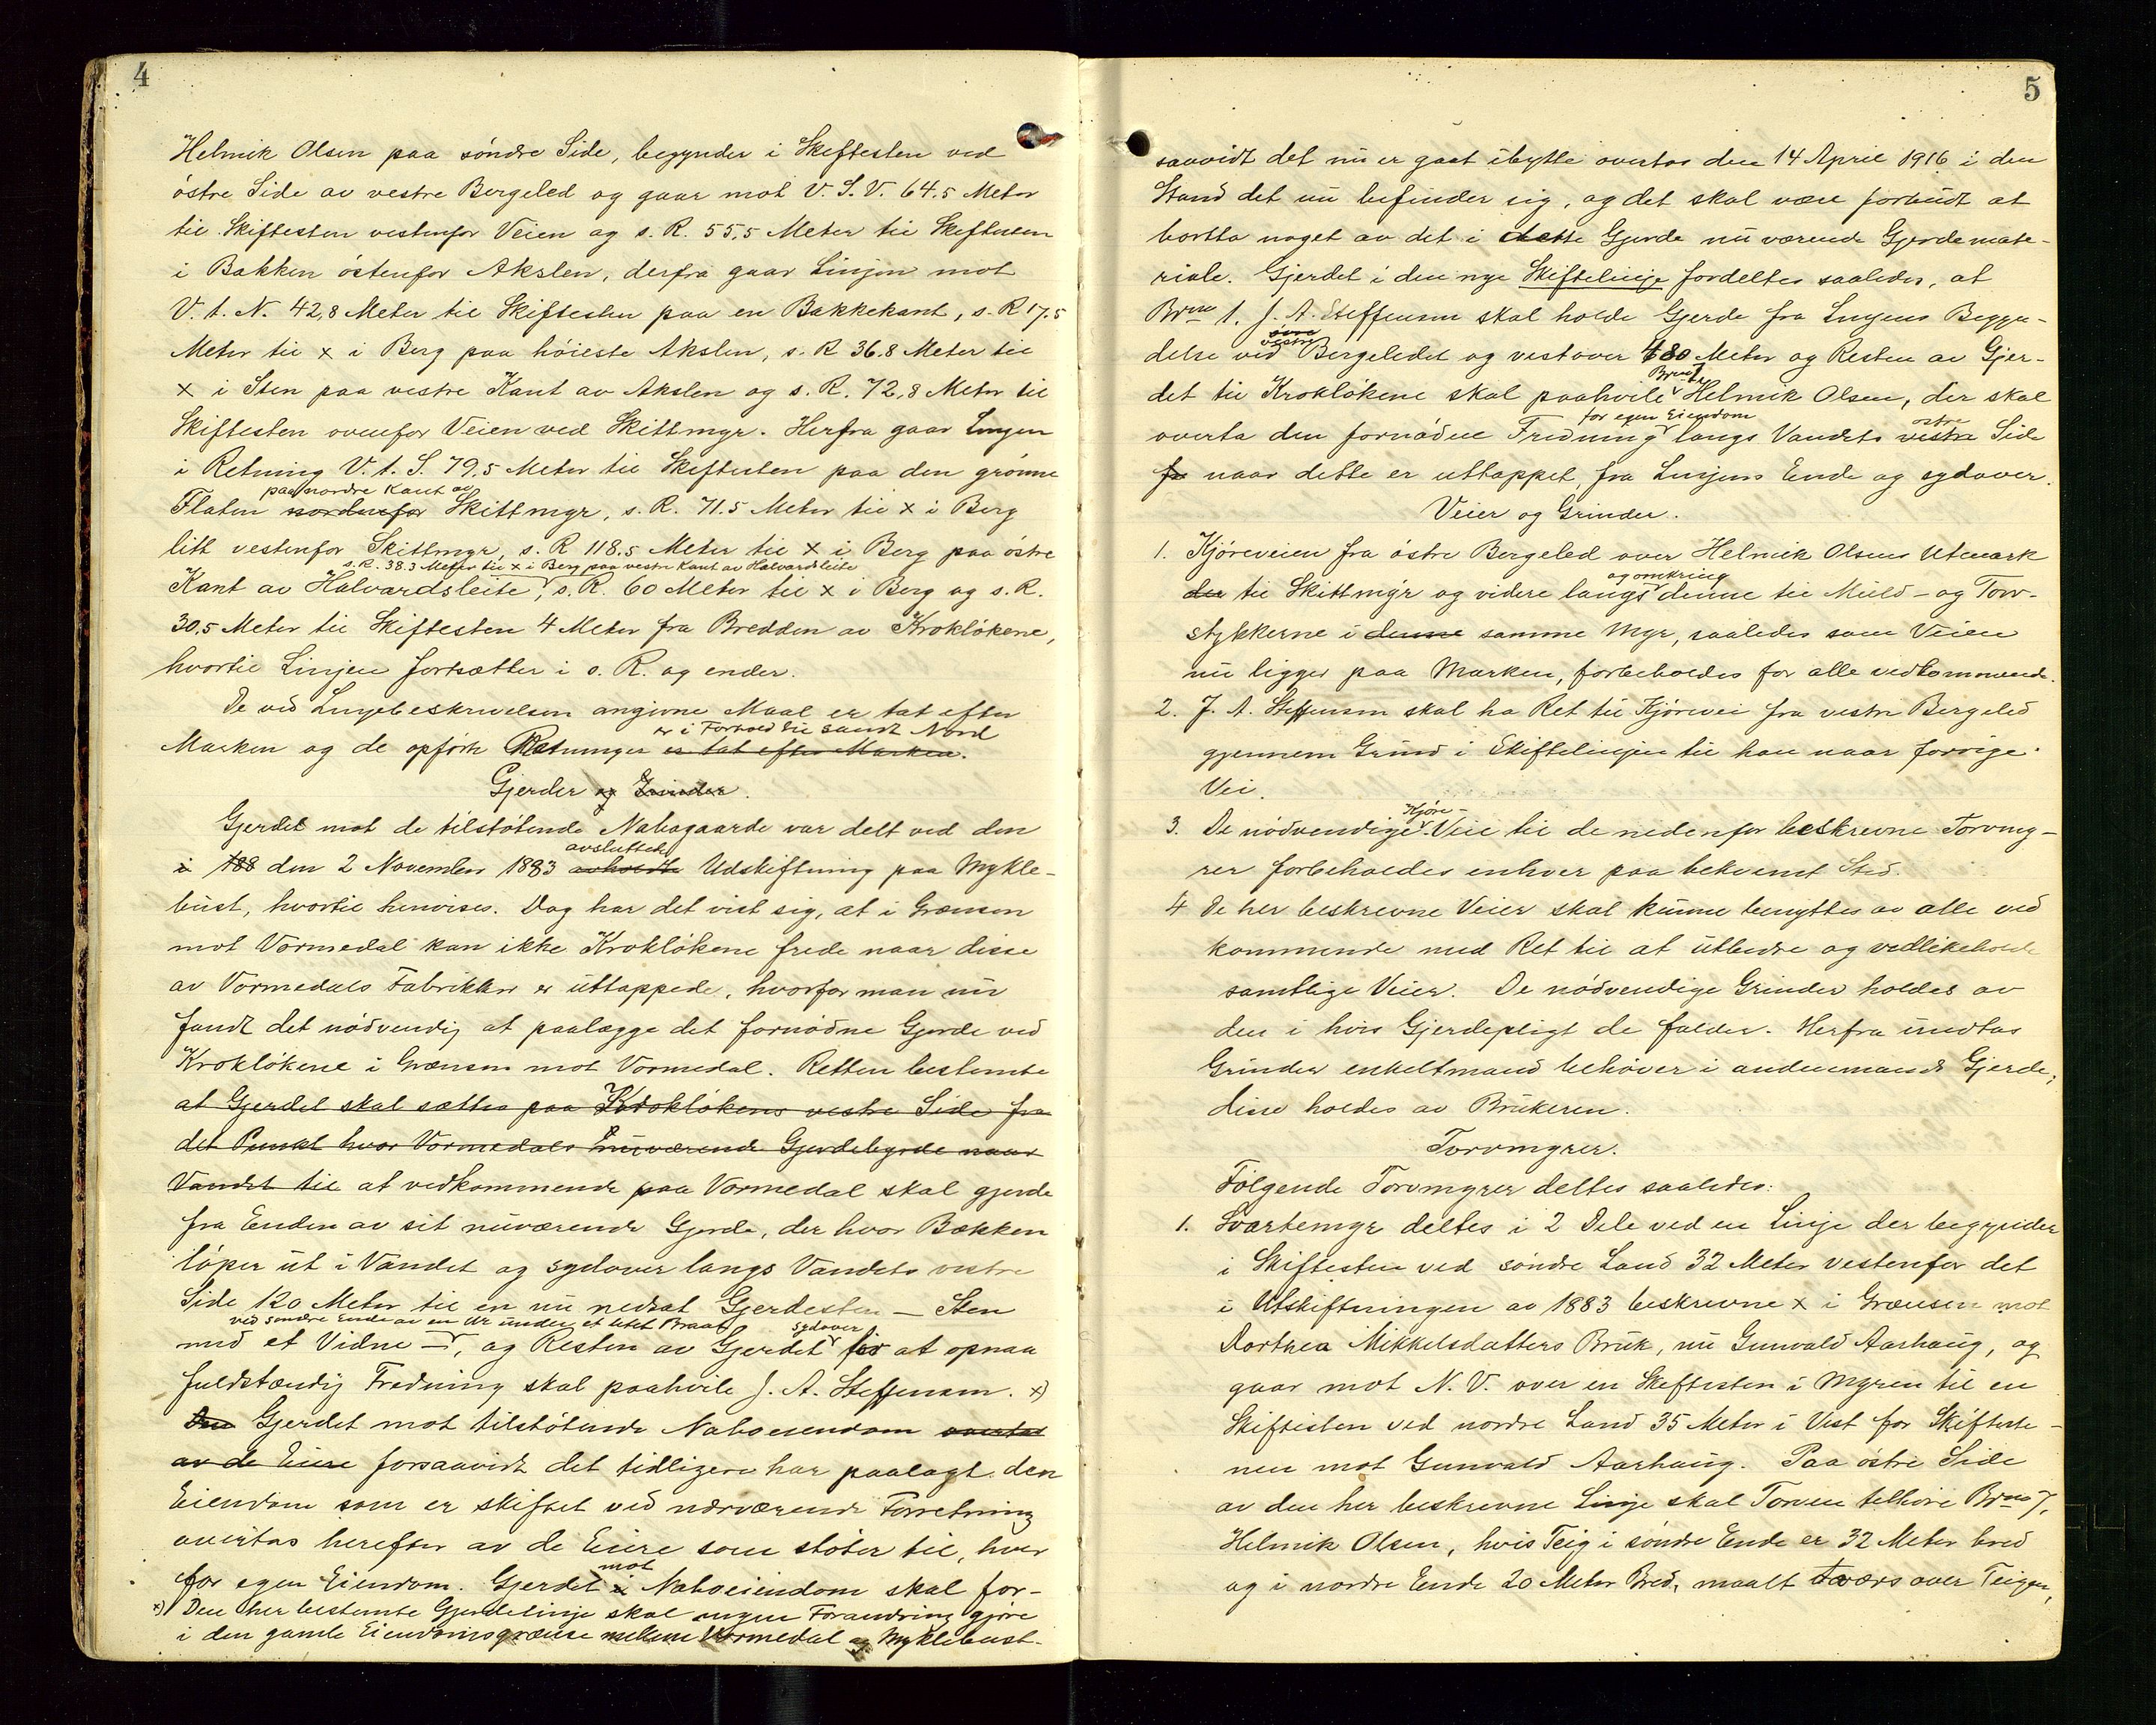 4
Helmik Olsen paa söndre Side, begynder i Skiftesten ved
östre Side av vestre Bergeled og gaar mot V. S. V. 64.5 Meter
til Skiftesten vestenfor Veien og s. R. 55,5 Meter til Skiftesten
i Bakken östenfor Akslen, derfra gaar Linjen mot
V. t. N. 42,8 Meter til Skiftesten paa en Bakkekant, s. R 17.5
Meter til x i Berg paa höieste Akslen, s. R 36.8 Meter til
x i Sten paa vestre Kant av Akslen og s. R. 72,8 Meter til
Skiftesten ovenfor Veien ved Skittmyr. Herfra gaar Linjen
i Retning V. t. S. 79,5 Meter til Skiftesten paa den grönne
paa nordre Kant av
Flaten nordenfor Skittmyr, s. R. 71.5 Meter til x i Berg
litt vestenfor Skittmyr, s. R 118.5 Meter til x i Berg paa östre
s. R. 38.3 Meter til x i Berg paa vestre Kant av Halvardsleite
Kant av Halvardsleite, s. R. 60 Meter til x i Berg og s. R.
30,5 Meter til Skiftesten 4 Meter fra Bredden av Kroklökene,
hvortil Linjen fortsætter i s. R. og ender.
De ved Linjebeskrivelsen angivne Maal er tat efter
er i Forhold til sandt Nord
Marken og de opförte Retninger er tat efter Marken.
Gjerder og Grinder.
Gjerdet mot de tilstötende Nabogaarde var delt ved den
avsluttede
i 188 den 2 November 1883 avholdte Udskiftning paa Mykle-
bust, hvortil henvises. Dog har det vist sig, at i Grænsen
mot Vormedal kan ikke Kroklökene frede naar disse
av Vormedals Fabrikker er uttappede, hvorfor man nu
fandt det nödvendig at paalægge det fornödne Gjerde ved
Kroklökene i Grænsen mot Vormedal. Retten bestemte
at Gjerdet skal sættes paa Kroklökens vestre Side fra
det Punkt hvor Vormedals nuværende Gjerdebyrde naar
Vandet til at vedkommende paa Vormedal skal gjerde
fra Enden av sit nuværende Gjerde, der hvor Bækken
löper ut i Vandet og sydover langs Vandets vestre
Side 120 Meter til en nu nedsat Gjerdesten — Sten
ved söndre Ende av en Ur under et litet Braat sydover
med et Vidne —, og Resten av Gjerdet for at opnaa
fuldstændig Fredning skal paahvile J. A. Steffensen. x)
Den Gjerdet mot tilstötende Naboeiendom overtas
av de Eiere forsaavidt det tidligere har paalagt den
Eiendom som er skiftet ved nærværende Forretning
overtas herefter av de Eiere som stöter til, hver
mot
for egen Eiendom. Gjerdet i Naboeiendom skal for-
x) Den her bestemte Gjerdelinje skal ingen Forandring gjöre
i den gamle Eiendomsgrænse mellem Vormedal og Myklebust.
5
saavidt det nu er gaat ibytte overtas den 14 April 1916 i den
Stand det nu befinder sig, og det skal være forbudt at
bortta noget av det i dette Gjerde nu værende Gjerdemate-
riale. Gjerdet i den nye Skiftelinje fordeltes saaledes, at
Brno 1. J. A. Steffensen skal holde Gjerde fra Linjens Begyn-
vestre
delse ved Bergeledet og vestover 480 Meter og Resten av Gjer-
Brno 7
det til Kroklökene skal paahvile Helmik Olsen, der skal
for egen Eiendom östre
overta den fornödne Fredning langs Vandets vestre Side
fr naar dette er uttappet, fra Linjens Ende og sydover.
Veier og Grinder.
1. Kjöreveien fra östre Bergeled over Helmik Olsens Utmark
og omkring
der til Skittmyr og videre langs denne til Muld- og Torv-
stykkerne i denne samme Myr, saaledes som Veien
nu ligger paa Marken, forbeholdes for alle vedkommende.
2. J. A. Steffensen skal ha Ret til Kjörevei fra vestre Bergeled
gjennem Grind i Skiftelinjen til han naar forrige
Vei.
Kjöre-
3. De nödvendige Veie til de nedenfor beskrevne Torvmy-
rer forbeholdes enhver paa bekvemt Sted.
4 De her beskrevne Veier skal kunne benyttes av alle ved
kommende med Ret til at utbedre og vedlikeholde
samtlige Veier. De nödvendige Grinder holdes av
den i hvis Gjerdepligt de falder. Herfra undtas
Grinder enkeltmand behöver i andenmands Gjerde;
disse holdes av Brukeren.
Torvmyrer.
Fölgende Torvmyrer deltes saaledes:
1. Svartemyr deltes i 2 Dele ved en Linje der begynder
i Skiftesten ved söndre Land 32 Meter vestenfor det
i Utskiftningen av 1883 beskrevne x i Grænsen mot
Dorthea Mikkelsdatters Bruk, nu Gunvald Aarhaug, og
gaar mot N. V. over en Skiftesten i Myren til en
Skiftesten ved nordre Land 35 Meter i Vest for Skifteste-
nen mot Gunvald Aarhaug. Paa östre Side
av den her beskrevne Linje skal Torven tilhöre Brno 7,
Helmik Olsen, hvis Teig i söndre Ende er 32 Meter bred
og i nordre Ende 20 Meter Bred, maalt tværs over Teigen,